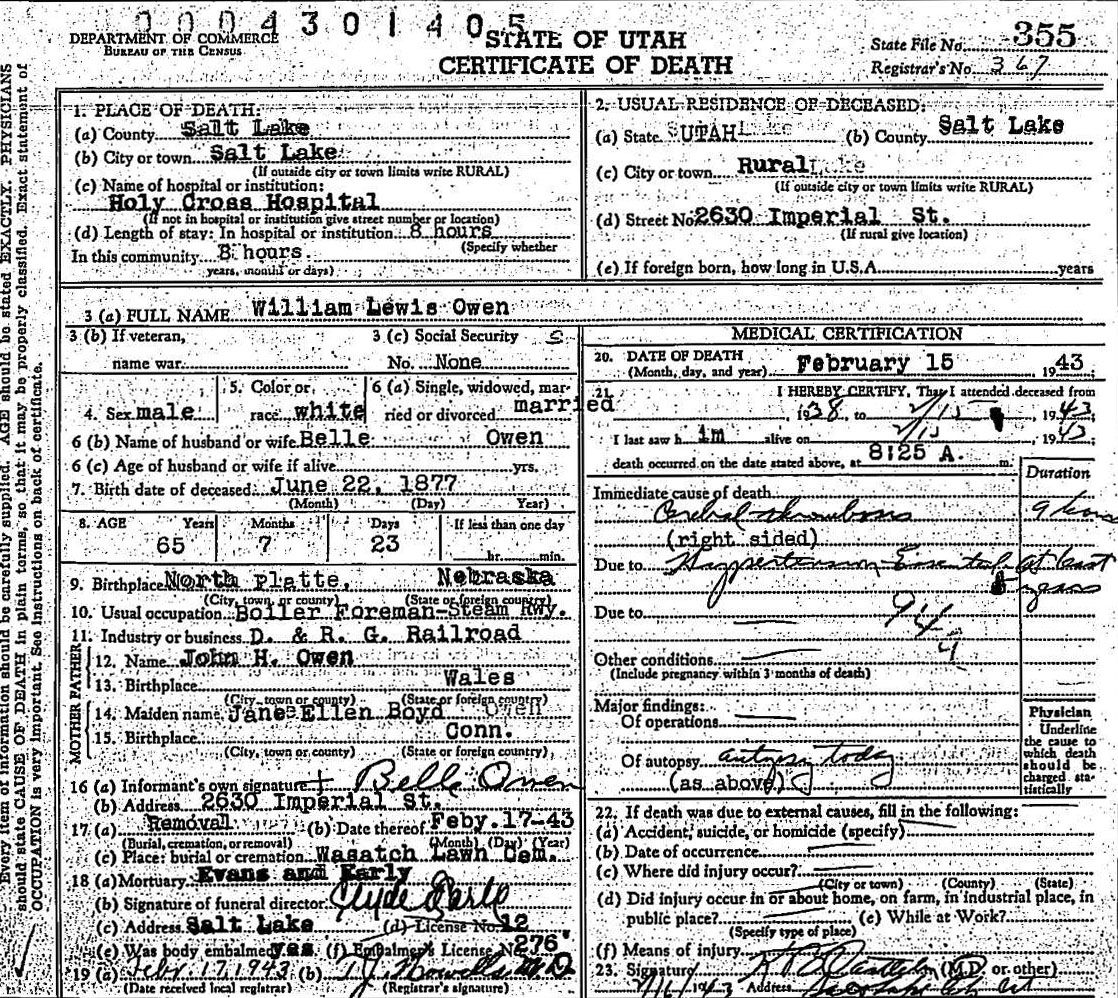 0004301405
DEPARTMENT OF COMMERCE
BUREAU OF THE CENSUS
STATE OF UTAH
CERTIFICATE OF DEATH
State File No. 355
Registrar's No. 367
Every item of information should be carefully supplied. AGE should be stated EXACTLY. PHYSICIANS
should state CAUSE OF DEATH in plain terms, so that it may be properly classified. Exact statement of
OCCUPATION is very important. See instructions on back of certificate.
1. PLACE OF DEATH:
(a) County Salt Lake
(b) City or town Salt Lake
(If outside city or town limits write RURAL)
(c) Name of hospital or institution:
Holy Cross Hospital
(If not in hospital or institution give street number or location)
(d) Length of stay: In hospital or institution 8 hours
(Specify whether
In this community 8 hours
years, months or days)
2. USUAL RESIDENCE OF DECEASED:
(a) State UTAH (b) County Salt Lake
(c) City or town Rural
(If outside city or town limits write RURAL)
(d) Street No. 2630 Imperial St.
(If rural give location)
(e) If foreign born, how long in U.S.A. years
3 (a) FULL NAME William Lewis Owen
3 (b) If veteran, 3 (c) Social Security
name war No. None
4. Sex male 5. Color or race white 6 (a) Single, widowed, married or divorced married
6 (b) Name of husband or wife Belle Owen
6 (c) Age of husband or wife if alive yrs.
7. Birth date of deceased June 22, 1877
(Month) (Day) Year)
8. AGE Years Months Days If less than one day
65 7 23 hr. min.
9. Birthplace North Platte, Nebraska
(City, town, or county) (State or foreign country)
10. Usual occupation Boiler Foreman-Steam Rwy.
11. Industry or business D. & R. G. Railroad
FATHER
12. Name John H. Owen
13. Birthplace Wales
(City, town or county) (State or foreign country)
MOTHER
14. Maiden name Jane Ellen Boyd
15. Birthplace Conn.
(City, town or county) (State or foreign country)
16 (a) Informant's own signature Belle Owen
(b) Address 2630 Imperial St.
17 (a) Removal (b) Date thereof Feby. 17-43
(Burial, cremation, or removal) (Month) (Day) (Year)
(c) Place: burial or cremation Wasatch Lawn Cem.
18 (a) Mortuary Evans and Early
(b) Signature of funeral director Clyde Early
(c) Address Salt Lake (d) License No. 12
(e) Was body embalmed yes (f) Embalmer's License No. 276
19 (a) Febr. 17, 1943 (b) T. J. Howells M D
(Date received local registrar) (Registrar's signature)
MEDICAL CERTIFICATION
20. DATE OF DEATH
(Month, day, and year) February 15 1943
21. I HEREBY CERTIFY, That I attended deceased from
1938 to 2/15 1943
I last saw h im alive on 2/15, 1943
death occurred on the date stated above, at 8:25 A. m.
Duration
Immediate cause of death
Cerebral thrombosis 9 hours
(right sided)
Due to Hypertension Essential at least
5 years
Due to
94
Other conditions
(Include pregnancy within 3 months of death)
Major findings:
Of operations
Of autopsy autopsy today
(as above)
Physician
Underline
the cause to
which death
should be
charged sta-
tistically
22. If death was due to external causes, fill in the following:
(a) Accident, suicide, or homicide (specify)
(b) Date of occurrence
(c) Where did injury occur?
(City or town) (County) (State)
(d) Did injury occur in or about home, on farm, in industrial place, in
public place? (e) While at Work?
(Specify type of place)
(f) Means of injury
23. Signature (M.D. or other)
2/16/1943 Address